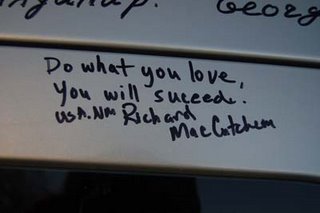 Georg
Do what you love,
You will succeed.
USA.NM Richard
MacCutcheon